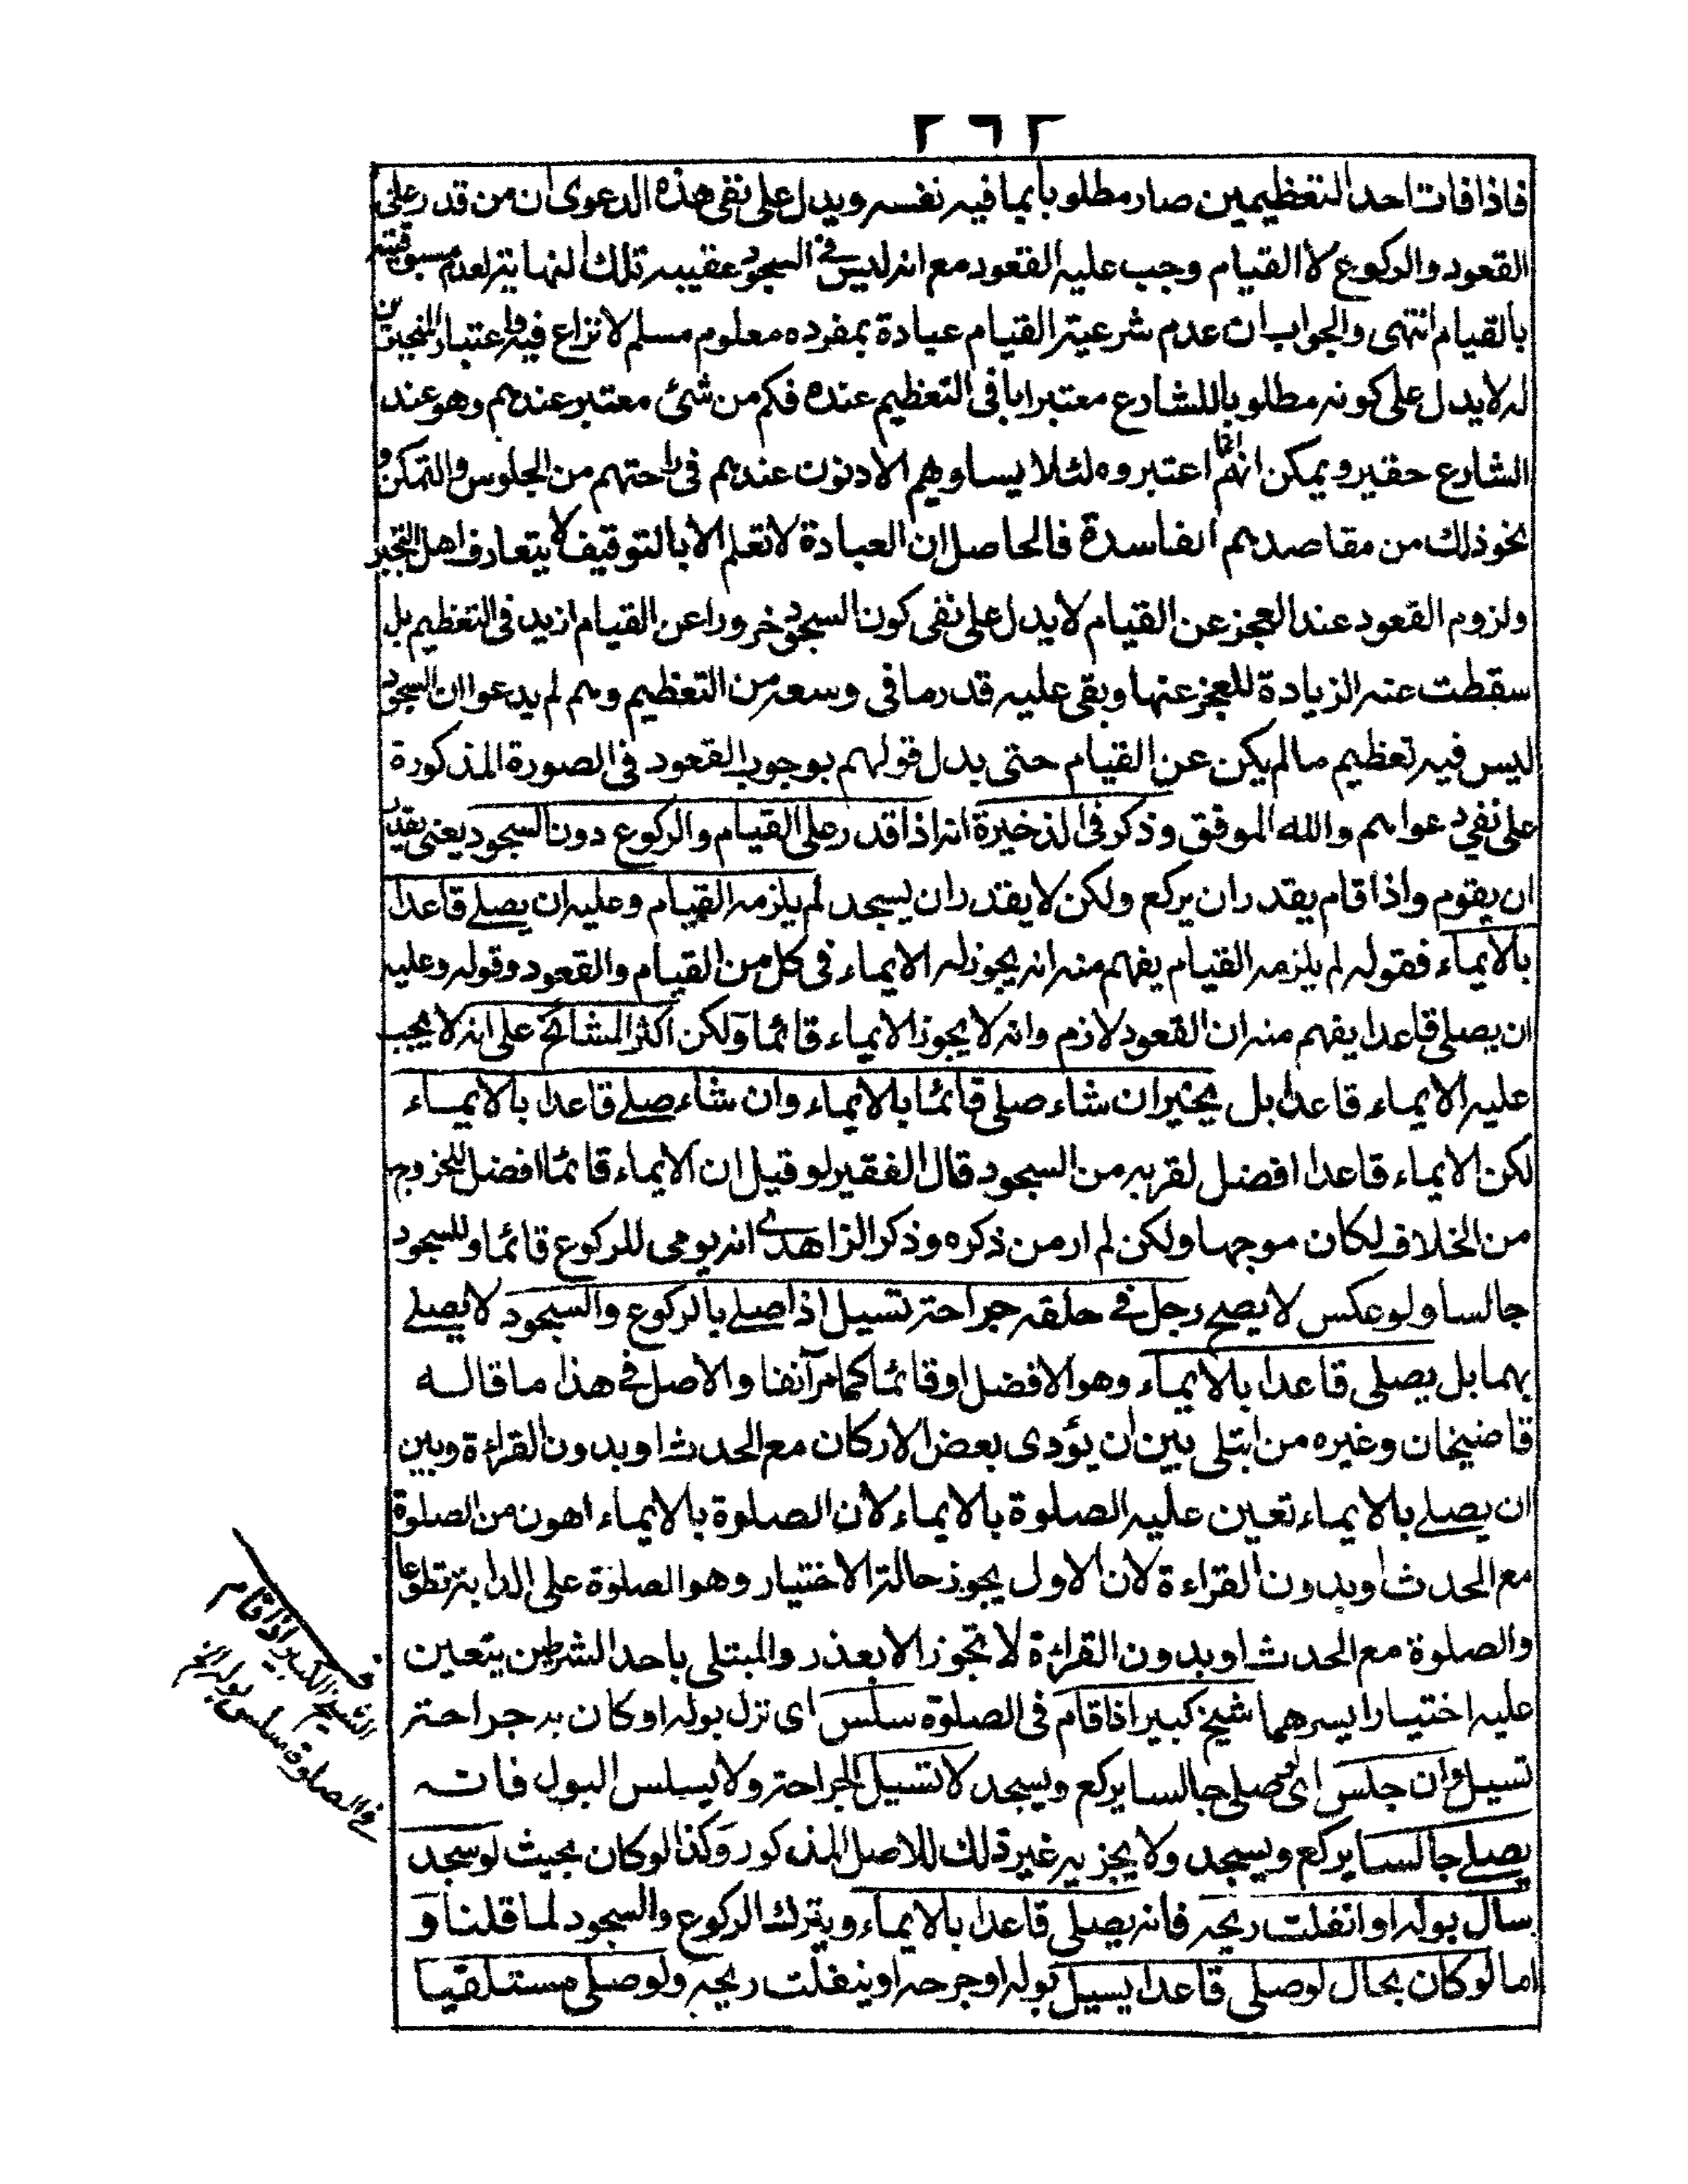 ٢٦٢
فاذا فات احد التعظيمين صار مطلوبا بما فيه نفسه ويدل على نفى هذه الدعوى ان من قدر على
القعود والركوع لا القيام وجب عليه القعود مع انه ليس فى السجود عقيبه تلك النهاية لعدم مسبوقيته
بالقيام انتهى والجواب ان عدم شرعية القيام عبادة بمفرده معلوم مسلم لا نزاع فيه واعتبار المتجبرين
له لا يدل على كونه مطلوبا للشارع معتبرا با فى التعظيم عنده فكم من شئ معتبر عندهم وهو عند
الشارع حقير ويمكن انهم انما اعتبروه لئلا يساويهم الادنون عندهم فى راحتهم من الجلوس والتمكن و
نحو ذلك من مقاصدهم الفاسدة فالحاصل ان العبادة لا تعلم الا بالتوقيف لا بتعارف اهل التجبر
ولزوم القعود عند العجز عن القيام لا يدل على نفى كون السجود خرورا عن القيام ازيد فى التعظيم بل
سقطت عنه الزيادة للعجز عنها وبقى عليه قدر ما فى وسعه من التعظيم وهم لم يدعوا ان السجود
ليس فيه تعظيم ما لم يكن عن القيام حتى يدل قولهم بوجوب القعود فى الصورة المذكورة
على نفى دعواهم والله الموفق وذكر فى الذخيرة انه اذا قدر على القيام والركوع دون السجود يعنى يقدر
ان يقوم واذا قام يقدر ان يركع ولكن لا يقدر ان يسجد لم يلزمه القيام وعليه ان يصلے قاعدا
بالايماء فقوله لم يلزمه القيام يفهم منه انه يجوز له الايماء فى كل من القيام والقعود وقوله وعليه
ان يصلى قاعدا يفهم منه ان القعود لازم وانه لا يجوز الايماء قائما ولكن اكثر المشائخ على انه لا يجب
عليه الايماء قاعدا بل يخير ان شاء صلى قائما بالايماء وان شاء صلے قاعدا بالايماء
لكن الايماء قاعدا افضل لقربه من السجود قال الفقير لو قيل ان الايماء قائما افضل للخروج
من الخلاف لكان موجها ولكن لم ار من ذكره وذكر الزاهدے انه يومى للركوع قائما وللسجود
جالسا ولو عكس لا يصح رجل فے حلقه جراحة تسيل اذا صلے بالركوع والسجود لا يصلے
بهما بل يصلى قاعدا بالايماء وهو الافضل او قائما كما مر آنفا والاصل فے هذا ما قاله
قاضيخان وغيره من ابتلى بين ان يؤدى بعض الاركان مع الحدث او بدون القراءة وبين
ان يصلے بالايماء تعين عليه الصلوة بالايماء لان الصلوة بالايماء اهون من الصلوة
مع الحدث او بدون القراءة لان الاول يجوز حالة الاختيار وهو الصلوة على الدابة تطوعا
والصلوة مع الحدث او بدون القراءة لا تجوز الا بعذر والمبتلى باحد الشرطين يتعين
عليه اختيار ايسرهما شيخ كبير اذا قام فى الصلوة سلس اى نزل بوله او كان به جراحة
تسيل وان جلس اى صلى جالسا يركع ويسجد لا تسيل الجراحة ولا يسلس البول فانه
يصلے جالسا يركع ويسجد ولا يجزيه غير ذلك للاصل المذكور وكذا لو كان بحيث لو سجد
سال بوله او انفلتت ريحه فانه يصلى قاعدا بالايماء ويترك الركوع والسجود لما قلنا و
اما لو كان بحال لو صلى قاعدا يسيل بوله او جرحه او ينفلت ريحه ولو صلى مستلقيا
الشيخ الكبير اذا قام
فے الصلوة سلس بوله الخ